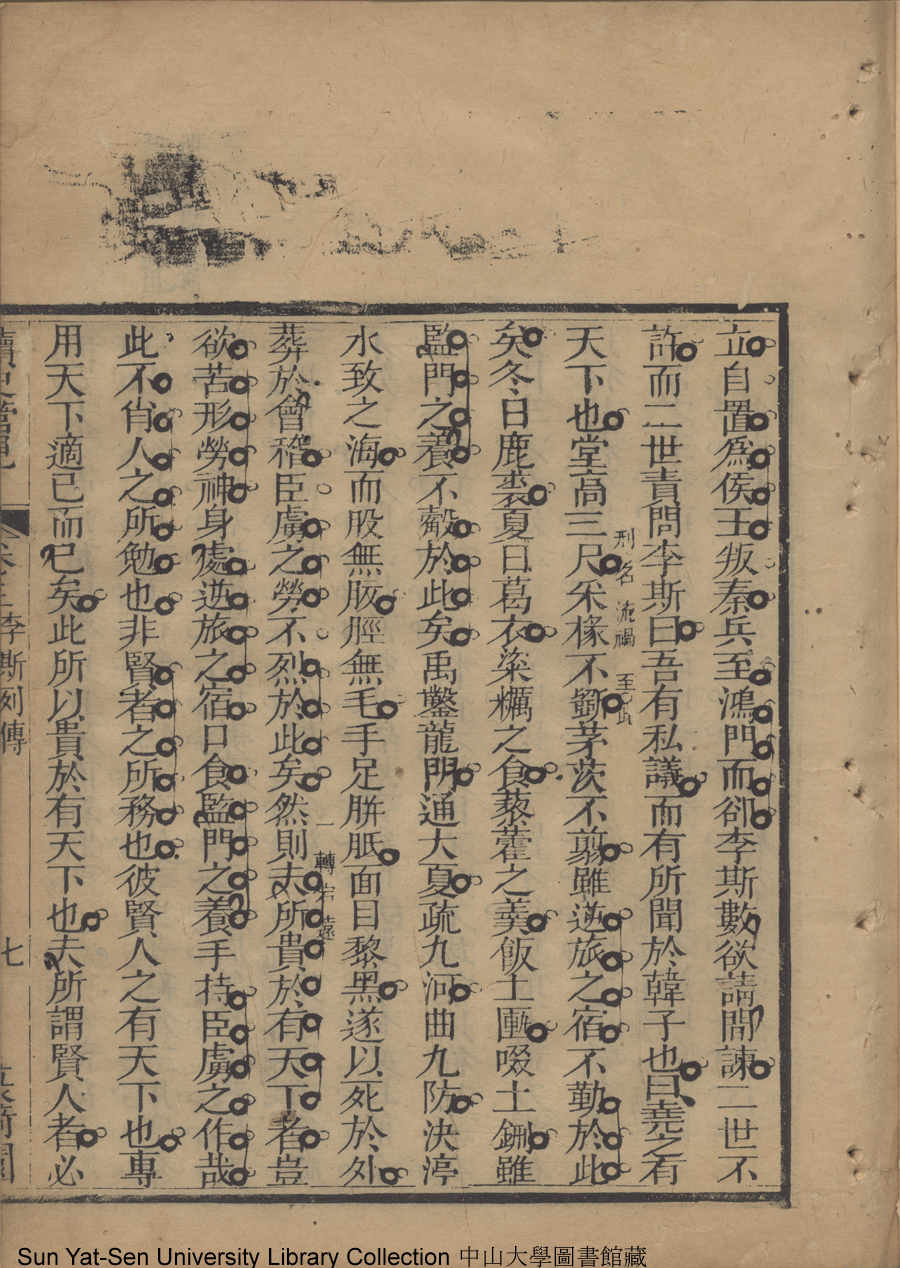 立自置爲侯王叛秦兵至鴻門而卻李斯數欲請間諫二世不
許而二世責問李斯曰吾有私議而有所聞於韓子也曰堯之有
天下也堂高三尺采椽不斲茅茨不翦雖逆旅之宿不勤於此
刑名流禍至此
矣冬日鹿裘夏日葛衣粢糲之食藜藿之羹飯土匭啜土鉶雖
監門之養不觳於此矣禹鑿龍門通大夏疏九河曲九防決渟
水致之海而股無胈脛無毛手足胼胝面目黎黑遂以死於外
葬於會稽臣虜之勞不烈於此矣然則夫所貴於有天下者豈
一轉宕遠
欲苦形勞神身處逆旅之宿口食監門之養手持臣虜之作哉
此不肖人之所勉也非賢者之所務也彼賢人之有天下也專
用天下適已而已矣此所以貴於有天下也夫所謂賢人者必
李斯列傳
七
Sun Yat-Sen University Library Collection 中山大學圖書館藏